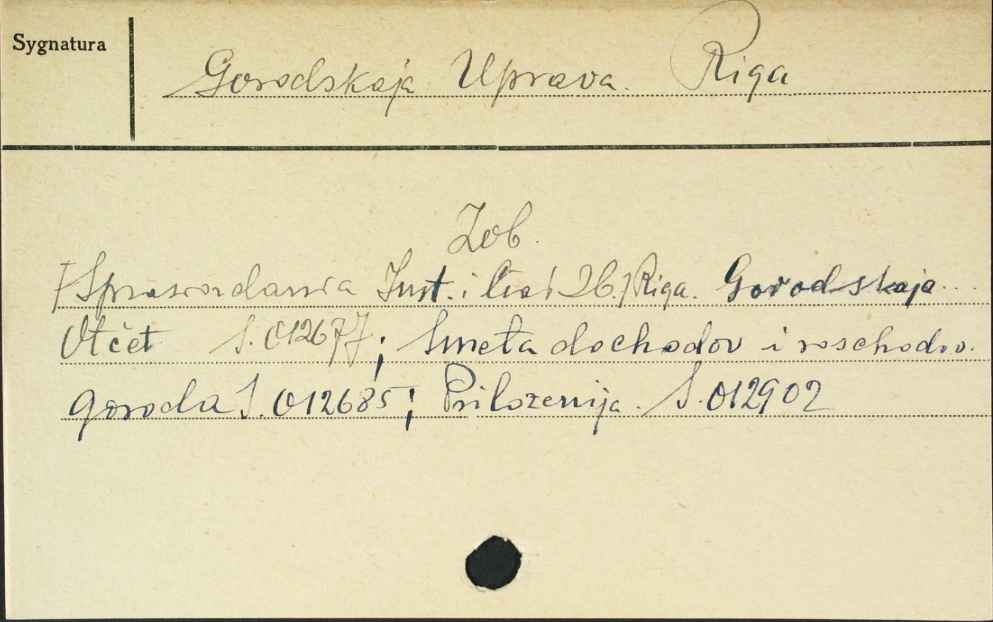 Sygnatura
Gorodskaja Uprava. Riga
Zob.
[Sprawozdania Inst. i 26.] Riga. Gorodskaja...
Otčet S.012677; Smeta dochodov i roschodov.
goroda S.012685; Priloženija. S.012902